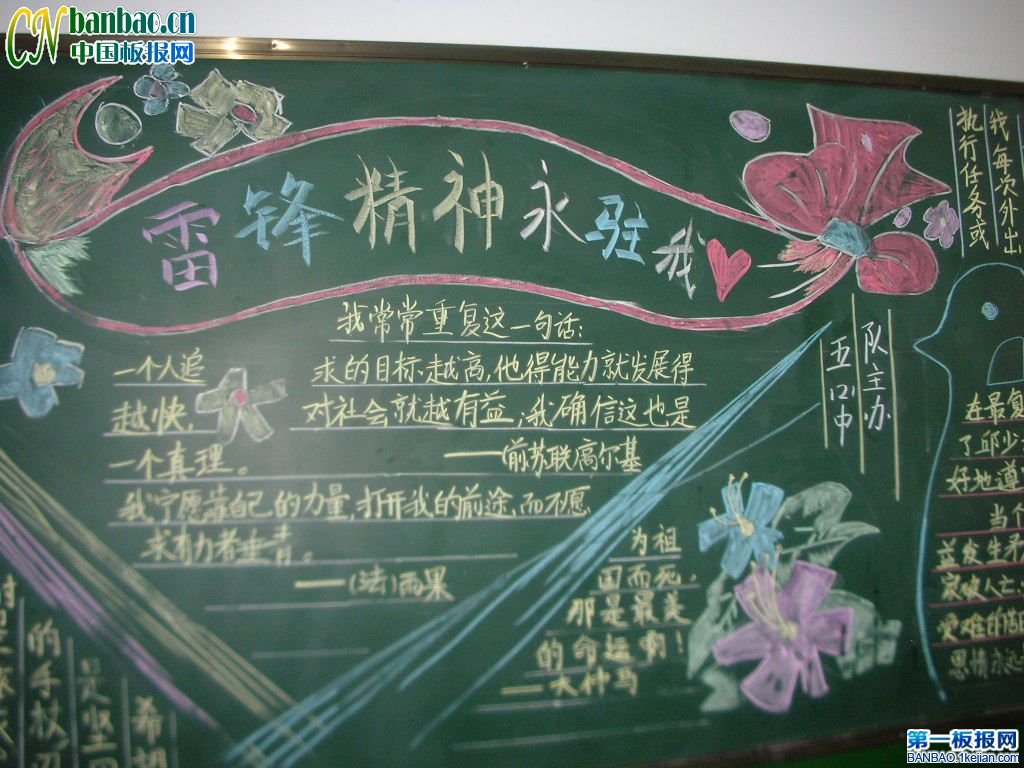 CN banbao.cn
中国板报网
雷锋精神永驻我
我常常重复这一句话:
一个人追 求的目标越高,他得能力就发展得
越快, 对社会就越有益,我确信这也是
一个真理。 ——(前苏联)高尔基
我宁愿靠自己的力量,打开我的前途,而不愿
求有力者垂青。
——(法)雨果
为祖
国而死,
那是最美
的命运啊!
——大仲马
队主办
五中
我每次外出
执行任务或
在最复
了邱少
好地道
当个
盛发生矛
家破人亡
受难的
思情永远
的手杖,没
是坚
希望
第一板报网
BANBAO.1kejian.com